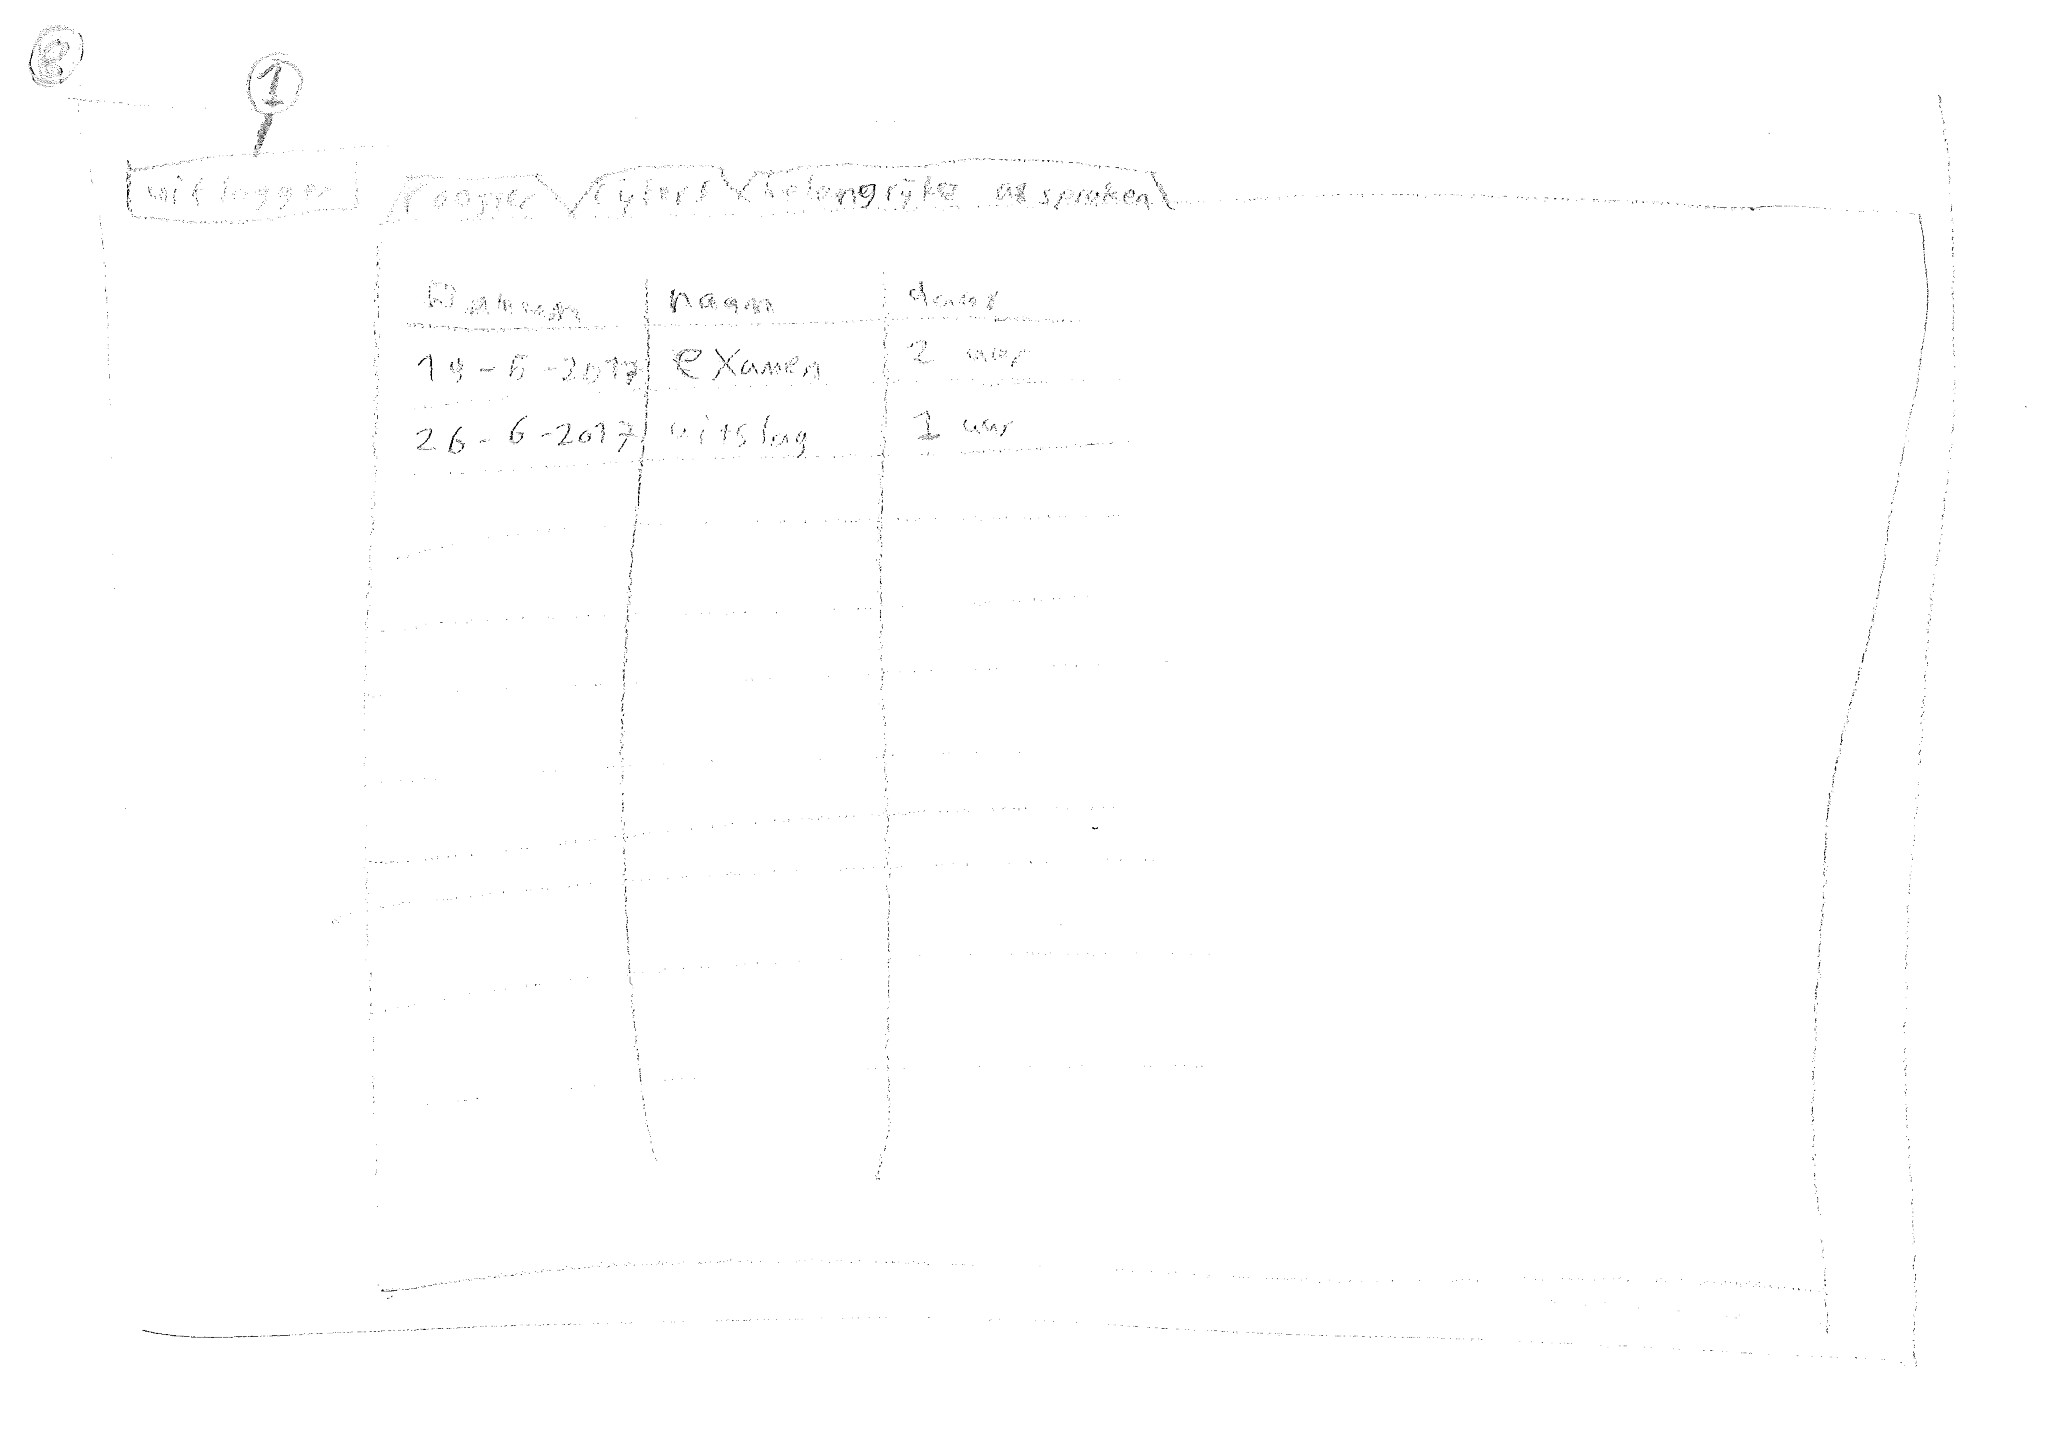 1
uitloggen
cijfers belangrijke afspraken
Datum naam duur
19-6-2017 examen 2 uur
26-6-2017 uitslag 1 uur